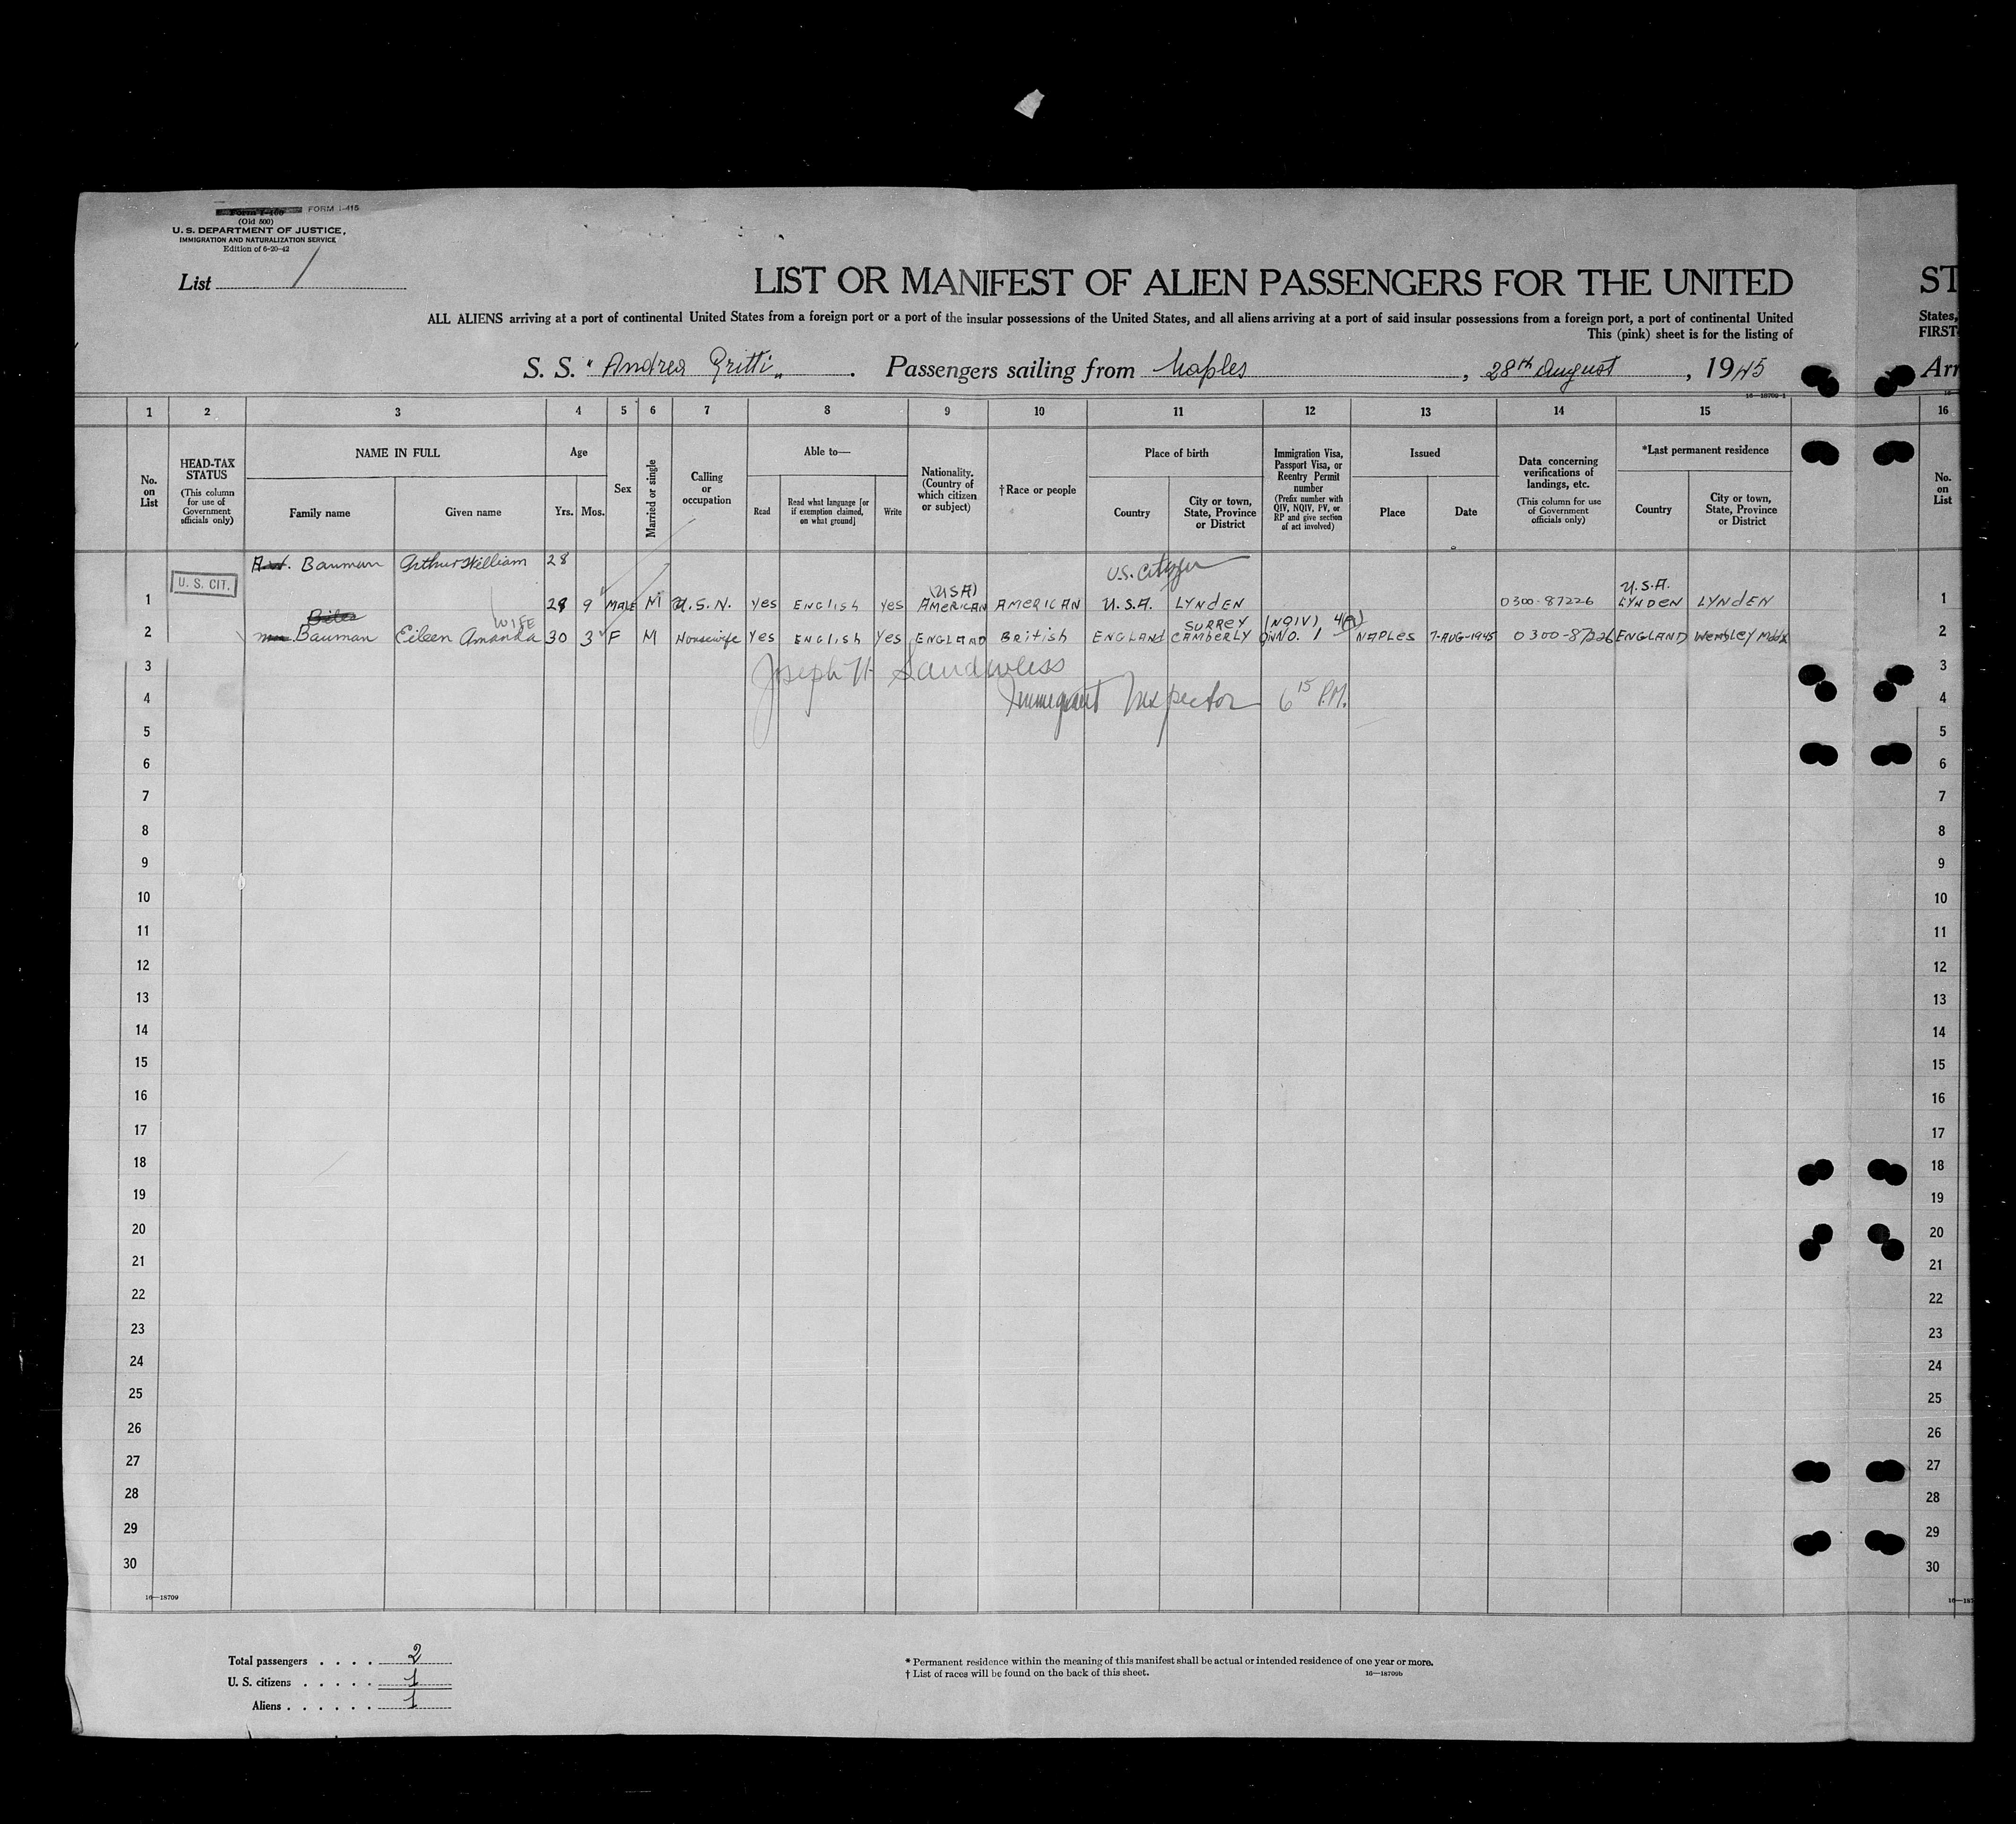 Form I-466 FORM I-415
(Old 500)
U. S. DEPARTMENT OF JUSTICE,
IMMIGRATION AND NATURALIZATION SERVICE
Edition of 6-20-42
List 1
LIST OR MANIFEST OF ALIEN PASSENGERS FOR THE UNITED
ST
ALL ALIENS arriving at a port of continental United States from a foreign port or a port of the insular possessions of the United States, and all aliens arriving at a port of said insular possessions from a foreign port, a port of continental United
States,
This (pink) sheet is for the listing of
FIRST-
S. S. "Andrea Gritti" . Passengers sailing from Naples , 28th August , 1945
Arr
16—18709-1
1 2 3 4 5 6 7 8 9 10 11 12 13 14 15 16
No. on List
HEAD-TAX STATUS
(This column for use of Government officials only)
NAME IN FULL
Family name
Given name
Age
Yrs.
Mos.
Sex
Married or single
Calling or occupation
Able to—
Read
Read what language [or if exemption claimed, on what ground]
Write
Nationality. (Country of which citizen or subject)
†Race or people
Place of birth
Country
City or town, State, Province or District
Immigration Visa, Passport Visa, or Reentry Permit number
(Prefix number with QIV, NQIV, PV, or RP and give section of act involved)
Issued
Place
Date
Data concerning verifications of landings, etc.
(This column for use of Government officials only)
*Last permanent residence
Country
City or town, State, Province or District
No. on List
A.W. Bauman Arthur William 28
U.S. Citizen
U. S. CIT.
(USA)
U.S.A.
1 28 9 MALE M U.S.N. Yes ENGLISH Yes AMERICAN AMERICAN U.S.A. LYNDEN 0300-87226 LYNDEN LYNDEN 1
WIFE
SURREY (NQIV) 4(A)
2 Bauman Eileen Amanda 30 3 F M Housewife Yes ENGLISH Yes ENGLAND British ENGLAND CAMBERLY NO. 1 NAPLES 7-AUG-1945 0300-87226 ENGLAND Wembley Mddx 2
3 Joseph H Sandweiss 3
4 Immigrant Inspector 6 15 P.M. 4
5 5
6 6
7 7
8 8
9 9
10 10
11 11
12 12
13 13
14 14
15 15
16 16
17 17
18 18
19 19
20 20
21 21
22 22
23 23
24 24
25 25
26 26
27 27
28 28
29 29
30 30
16—18709
16—187
Total passengers . . . . 2
U. S. citizens . . . . . 1
Aliens . . . . . . 1
* Permanent residence within the meaning of this manifest shall be actual or intended residence of one year or more.
† List of races will be found on the back of this sheet.
16—18709b